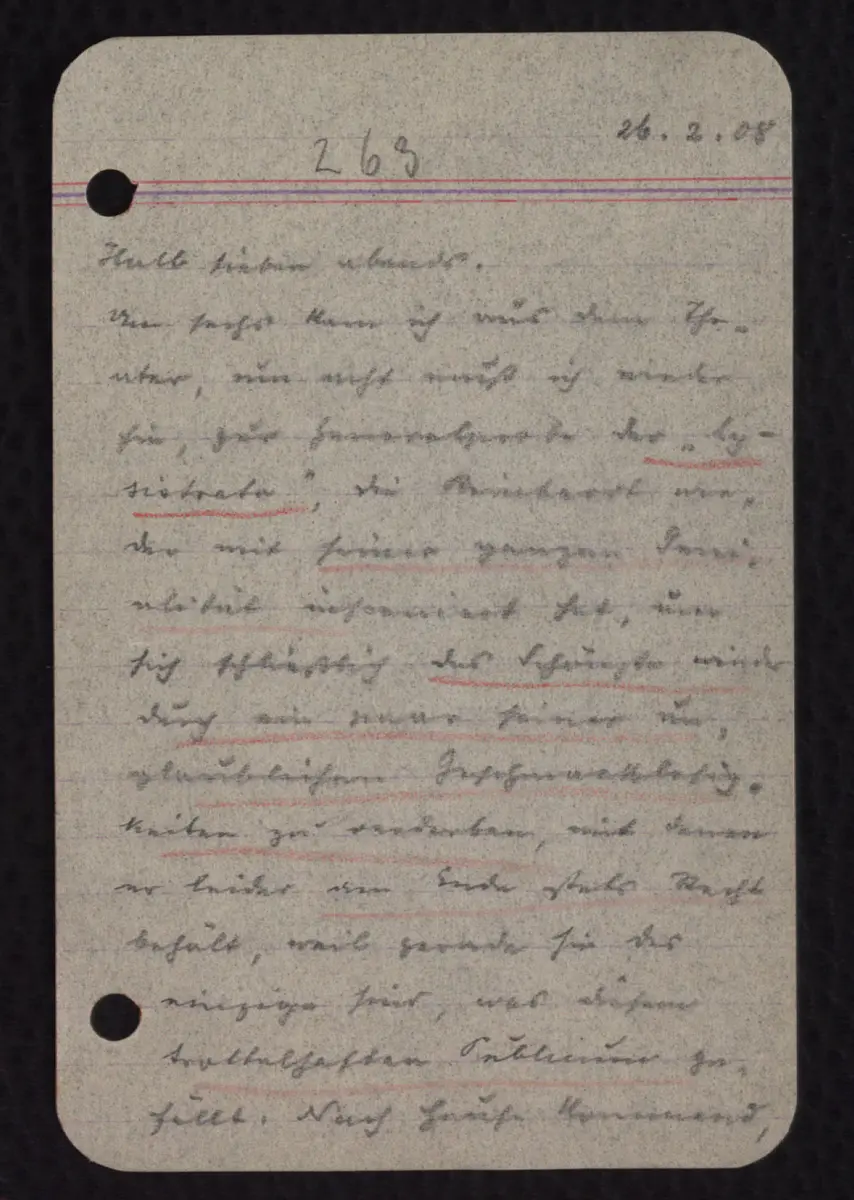 263
26. 2. 08
Halb sieben abends.
Um sechs kam ich aus dem The-
ater, um acht muß ich wieder
hin, zur Generalprobe der „Ly-
sistrata“, die Reinhardt wie-
der mit seiner ganzen Geni-
alität insceniert hat, um
sich schließlich das Schönste wieder
durch ein paar seiner un-
glaublichen Geschmacklosig-
keiten zu verderben, mit denen
er leider am Ende stets Recht
behält, weil gerade sie das
einzige sind, was diesem
trottelhaften Publicum ge-
fällt. Nach Hause kommend,